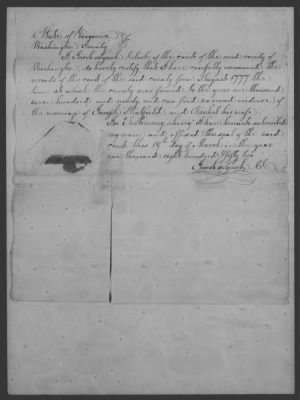 State of Virginia
Washington County
I Jacob Lynch Clerk of the court of the said county of
Washington do hereby certify that I have carefully examined the
records of the court of the said county from August 1777 the
time at which the county was formed to the year one thousand
seven hundred and ninety and can find no record evidence of
the marriage of Joseph Hatfield and Rachel his wife.
In Testimony whereof I have hereunto subscribed
my name and affixed the seal of the said
Court this 19th day of March in the year
one thousand eight hundred & fifty two
Jacob Lynch